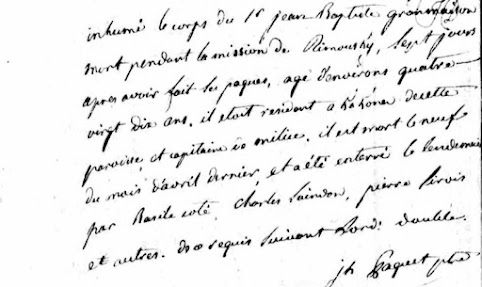 inhumé le corps du Sr jean Baptiste grandmaison
mort pendant la mission de Rimousky, sept jours
apres avoir fait ses paques, agé d'environs quatre
vingt dix ans. il etoit resident a KaKona de cette
paroisse, et capitaine de milice. il est mort le neuf
du mois d'avril dernier, et a été enterré le lendemain
par Basile coté, Charles Saindon, pierre Sirois
et autres. de ce requis suivant l'ord:
jh Paquet ptre